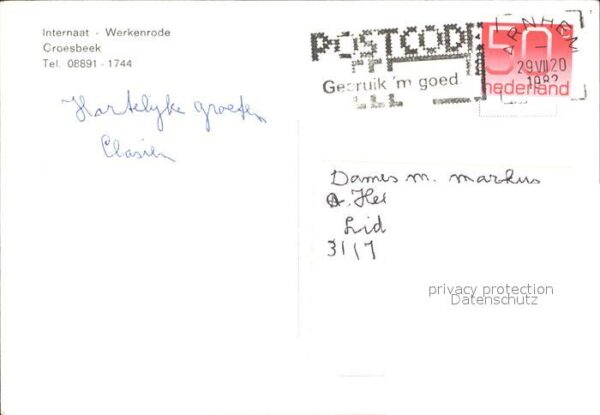 Internaat - Werkenrode
Croesbeek
Tel. 08891 - 1744
POSTCODE
Gebruik 'm goed.
ARNHEM
29 VII 20
1982
50
nederland
Hartelijke groeten
Clasien
Dames M. Markus
A. Hei
Lid
31/7
privacy protection
Datenschutz